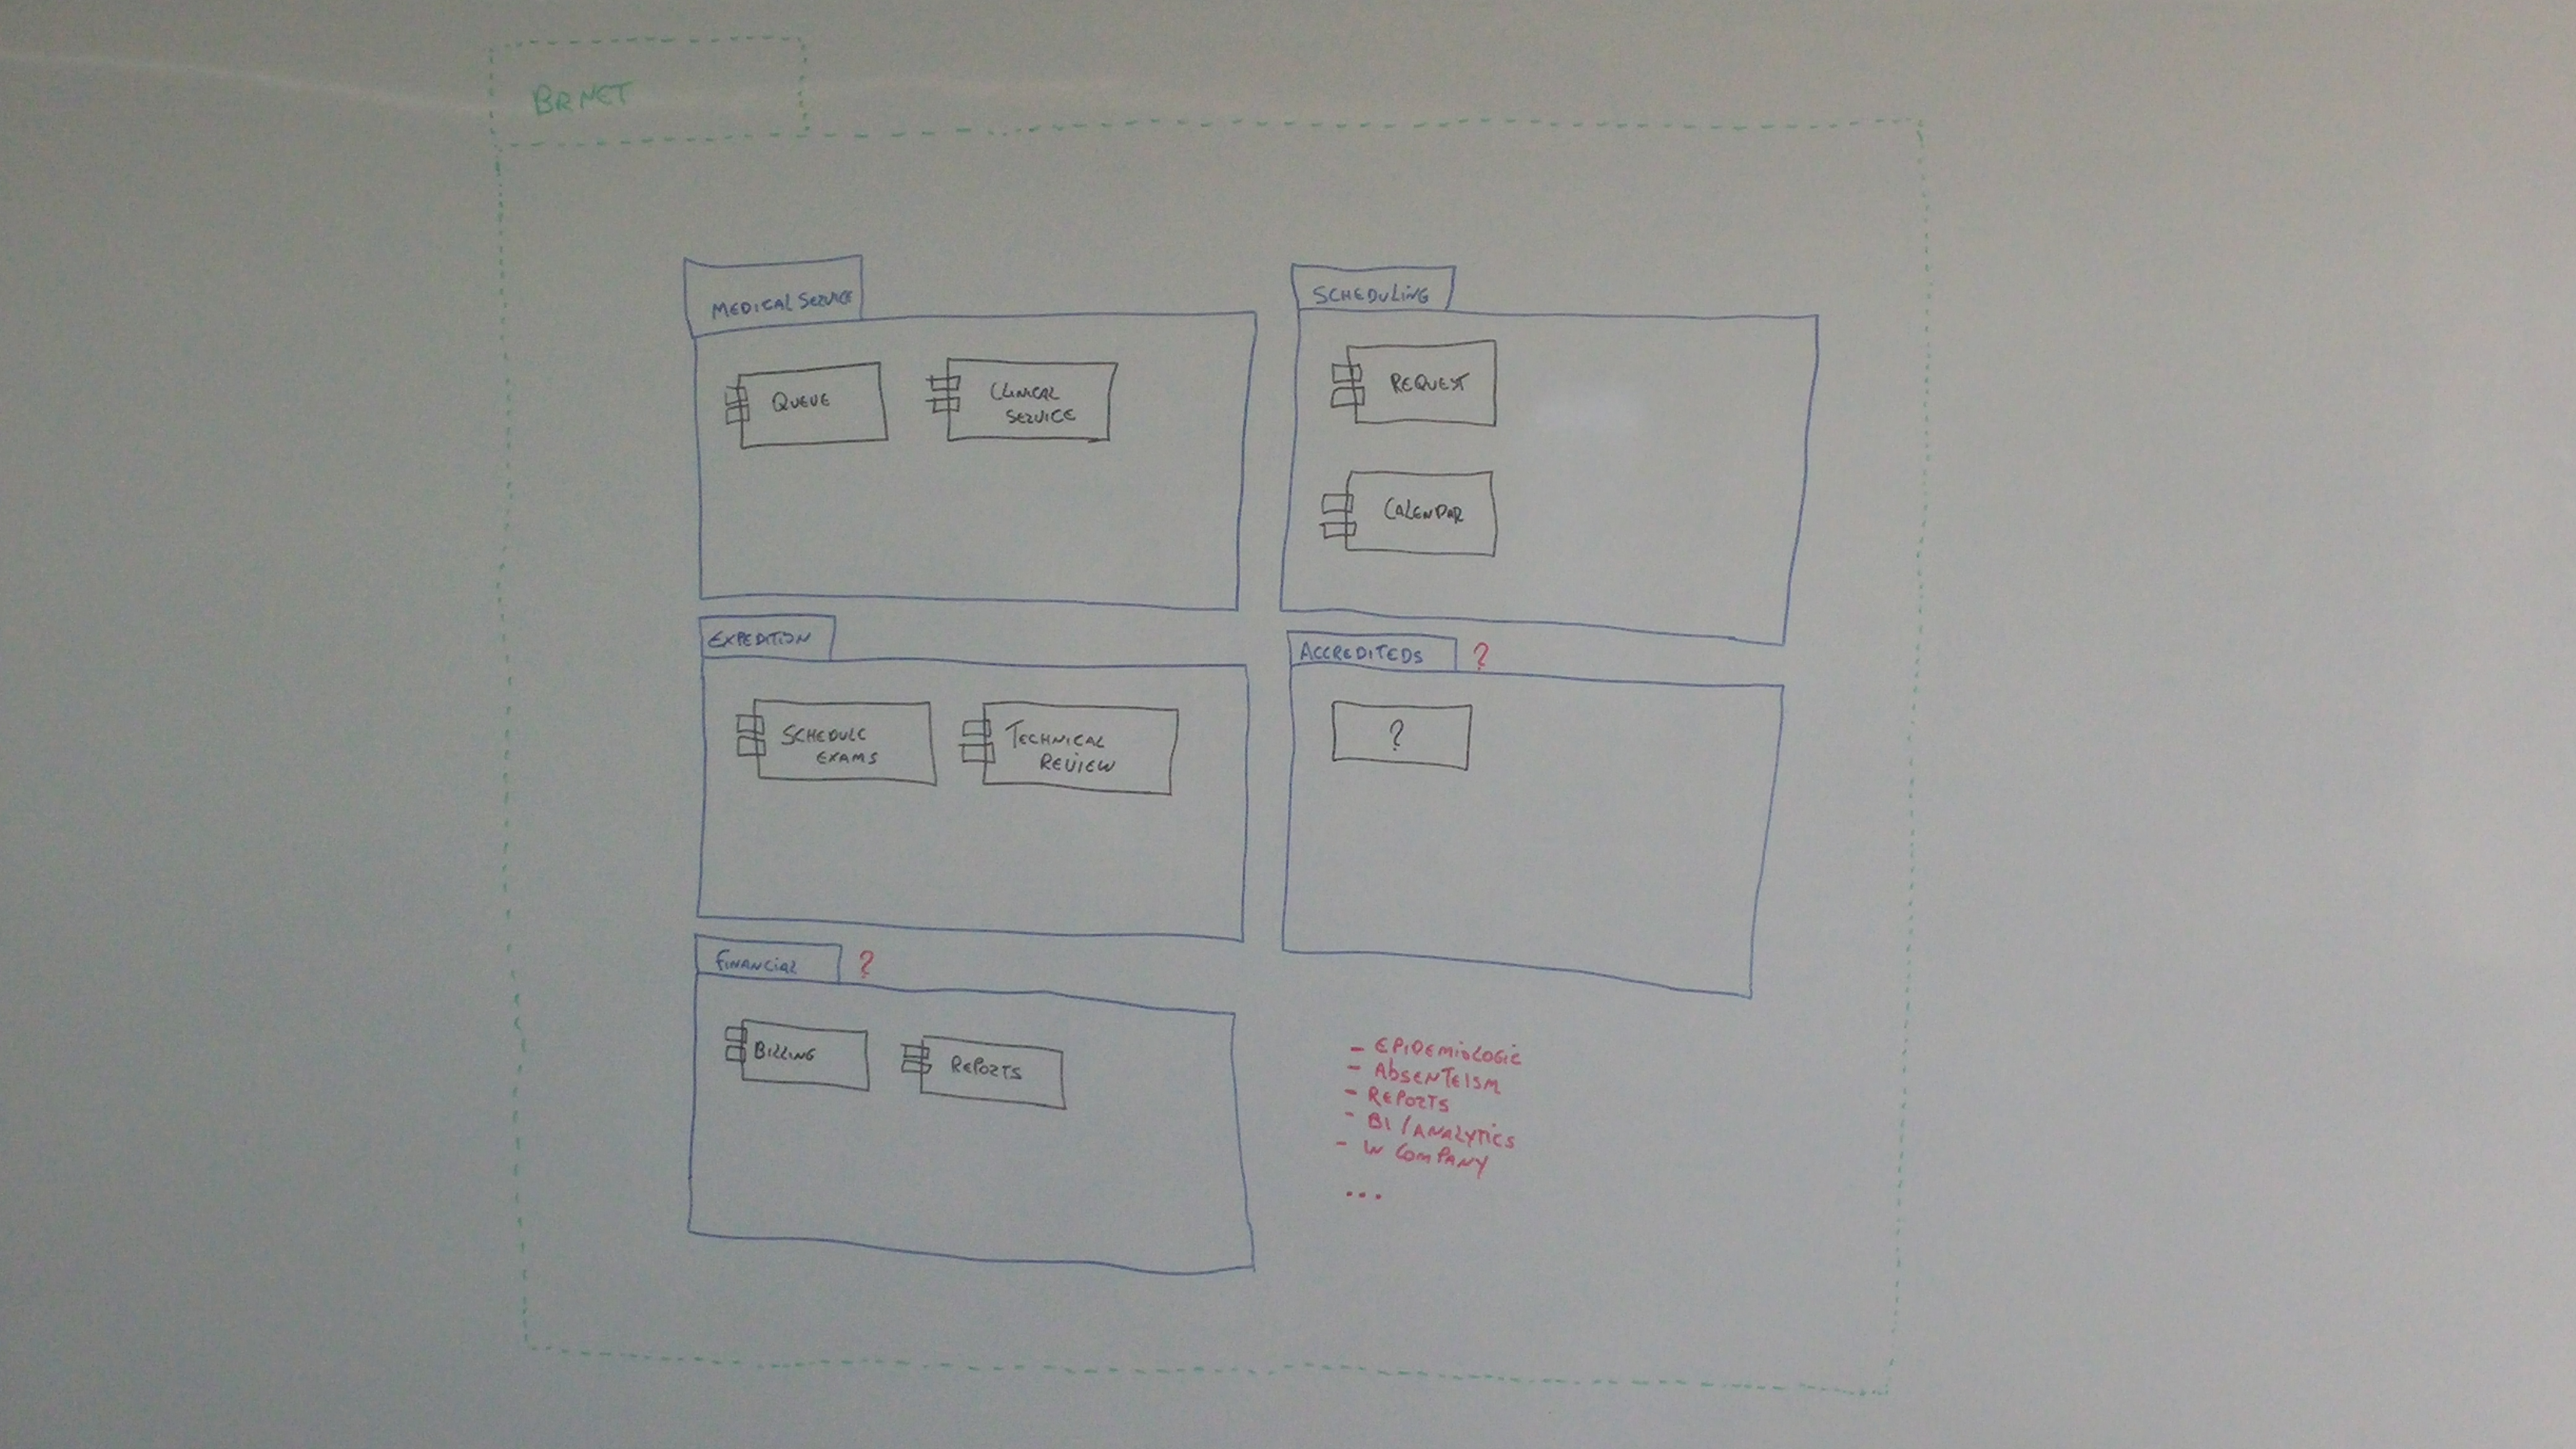 BRNET
MEDICAL SERVICE
QUEUE
CLINICAL
SERVICE
SCHEDULING
REQUEST
CALENDAR
EXPEDITION
SCHEDULE
EXAMS
TECHNICAL
REVIEW
ACCREDITEDS ?
?
FINANCIAL ?
BILLING
REPORTS
- EPIDEMIOLOGIC
- ABSENTEISM
- REPORTS
- BI / ANALYTICS
- W COMPANY
...